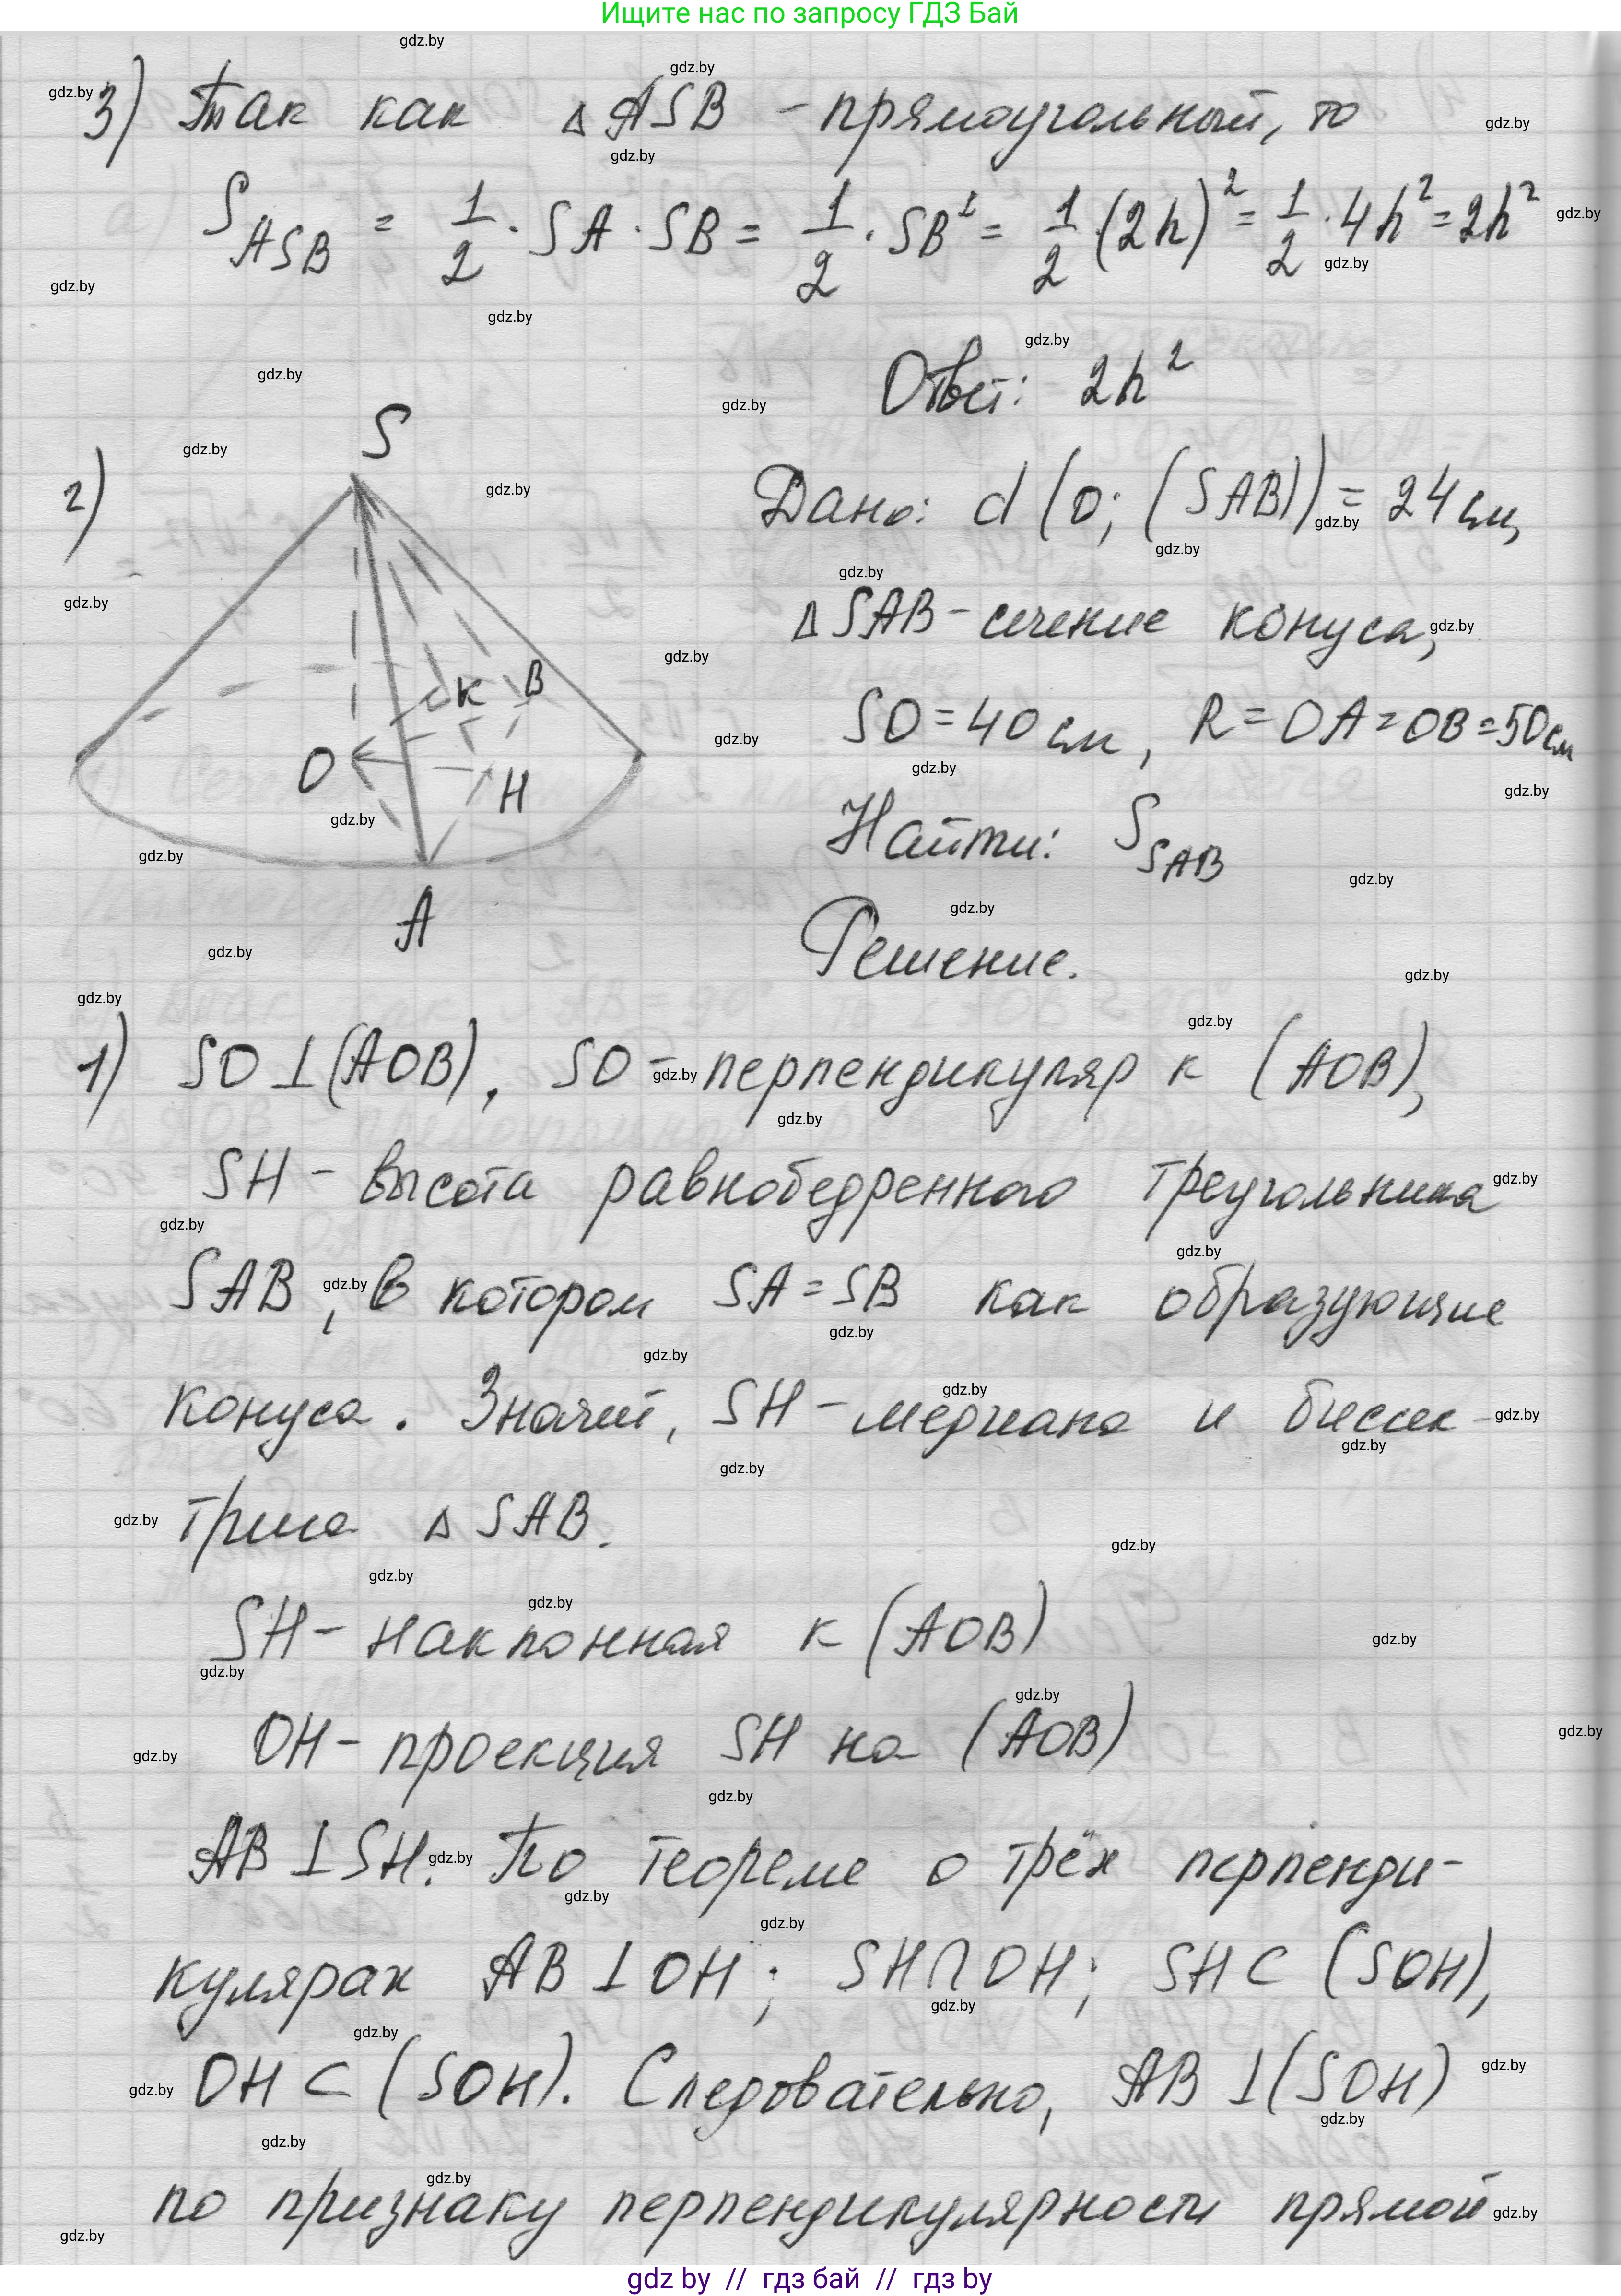 Ищите нас по запросу ГДЗ Бай
3) Так как △ASB - прямоугольный, то
S_ASB = 1/2 · SA · SB = 1/2 · SB² = 1/2 (2h)² = 1/2 · 4h² = 2h²
Ответ: 2h²
2)
S
K
B
O
H
A
Дано: d (O; (SAB)) = 24 см,
△SAB - сечение конуса,
SO = 40 см, R = OA = OB = 50 см
Найти: S_SAB
Решение.
1) SO ⊥ (AOB), SO - перпендикуляр к (AOB),
SH - высота равнобедренного треугольника
SAB, в котором SA = SB как образующие
конуса. Значит, SH - медиана и биссек-
триса △SAB.
SH - наклонная к (AOB)
OH - проекция SH на (AOB)
AB ⊥ SH. По теореме о трёх перпенди-
кулярах AB ⊥ OH; SH ∩ OH; SH ⊂ (SOH),
OH ⊂ (SOH). Следовательно, AB ⊥ (SOH)
по признаку перпендикулярности прямой
gdz.by
gdz by // гдз бай // гдз by